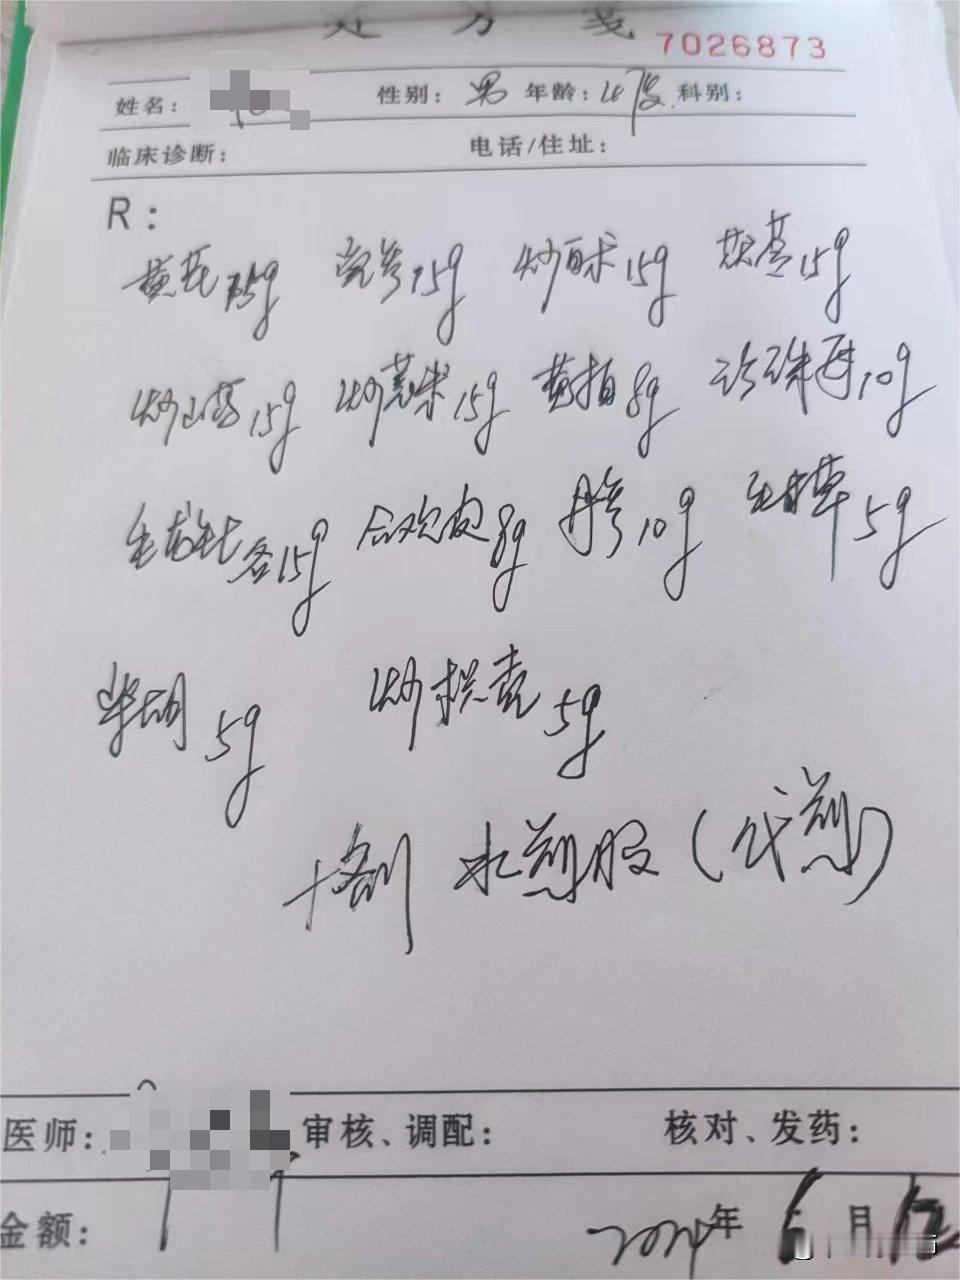 处方笺
7026873
姓名: 性别: 男 年龄: 科别:
临床诊断: 电话/住址:
R:
黄芪15g 党参15g 炒白术15g 茯苓15g
炒山药15g 炒苡米15g 黄柏8g 珍珠母10g
生龙牡各15g 合欢皮8g 丹参10g 生甘草5g
柴胡5g 炒枳壳5g
十剂 水煎服(代煎)
医师: 审核、调配: 核对、发药:
金额: 2024年6月12